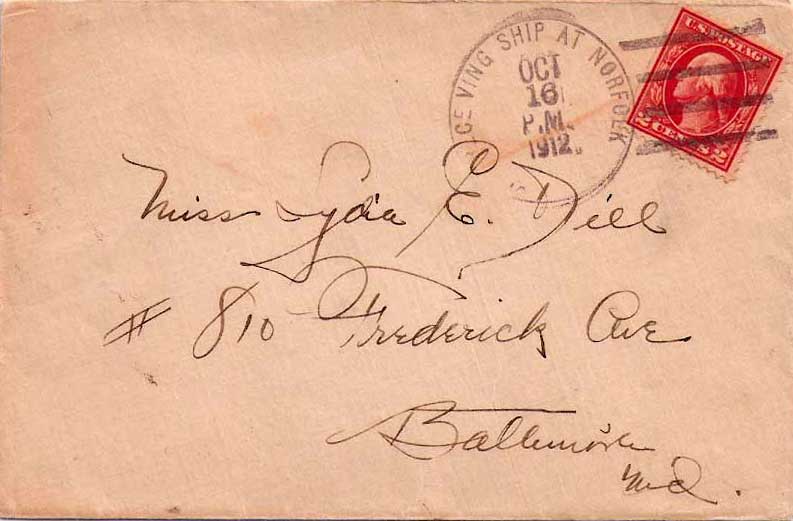 CEIVING SHIP AT NORFOLK
OCT
16
P.M.
1912.
U.S. POSTAGE
2 CENTS 2
Miss Lydia E. Dill
# 810 Frederick Ave
Baltimore
Md.